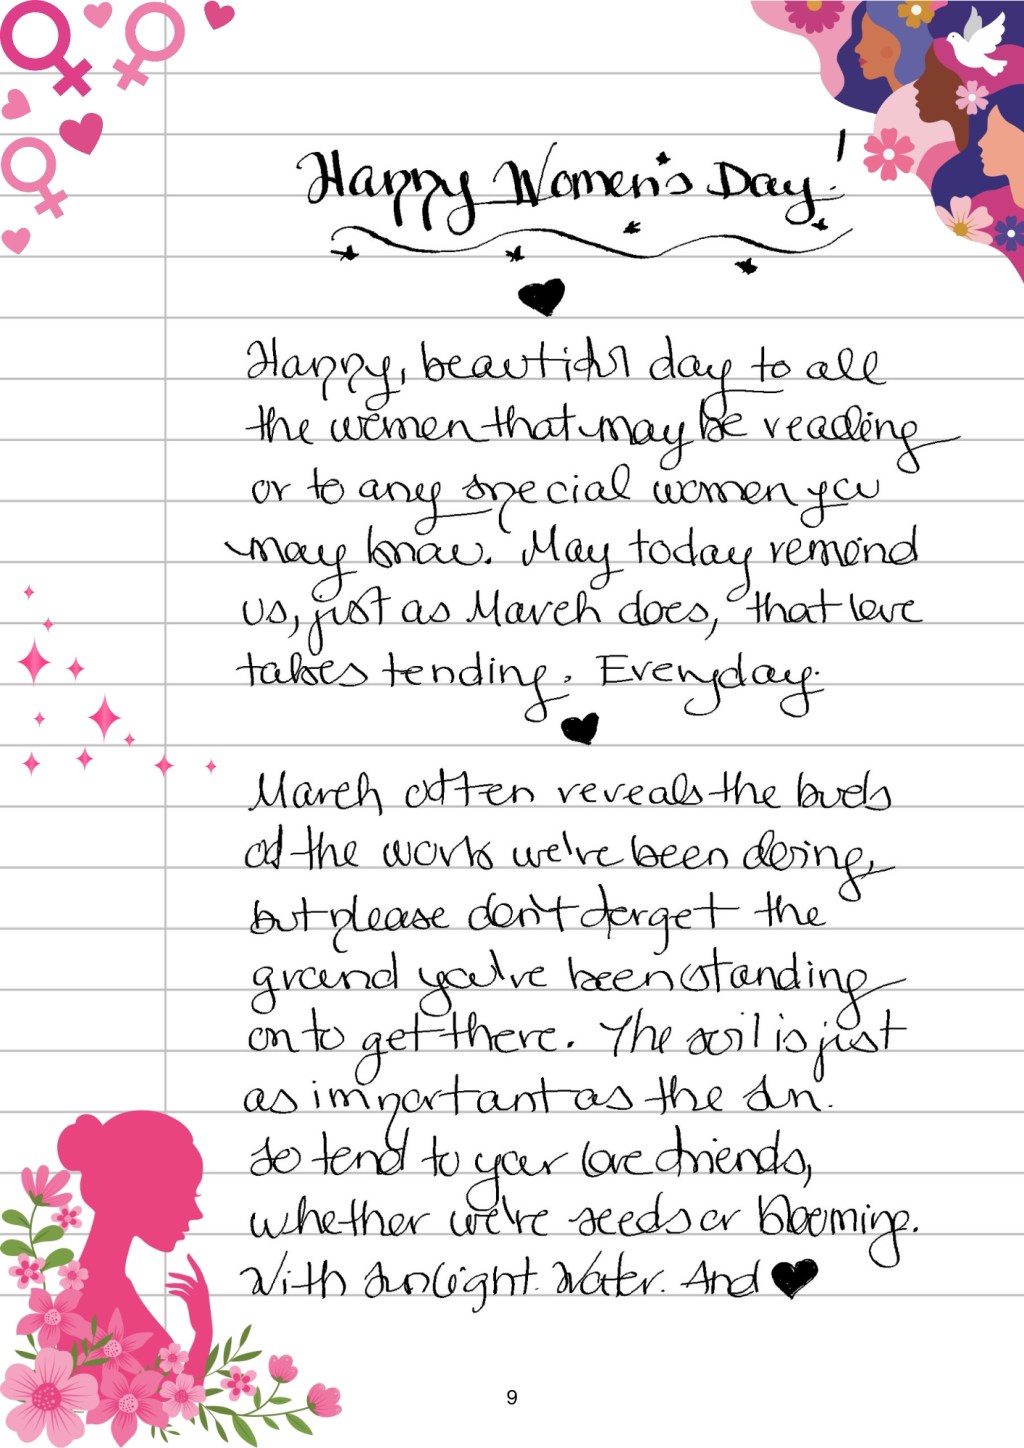 Happy Women's Day!
Happy, beautiful day to all
the women that may be reading
or to any special women you
may know. May today remind
us, just as March does, that love
takes tending. Everyday.
March often reveals the buds
of the work we've been doing,
but please don't forget the
ground you've been standing
on to get there. The soil is just
as important as the sun.
So tend to your love friends,
whether we're seeds or blooming.
With sunlight. Water. And ♥
9